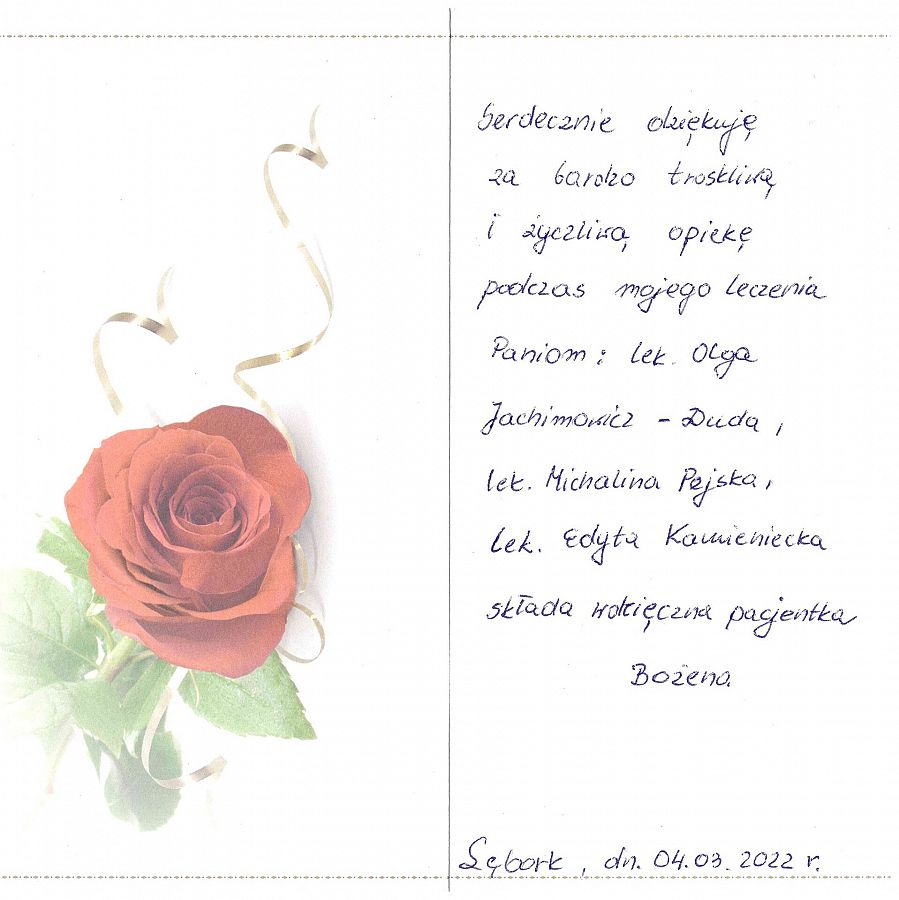 Serdecznie dziękuję
za bardzo troskliwą
i życzliwą opiekę
podczas mojego leczenia
Paniom: lek. Olga
Jachimowicz - Duda,
lek. Michalina Pejska,
lek. Edyta Kamieniecka
składa wdzięczna pacjentka
Bożena
Lębork, dn. 04.03.2022 r.